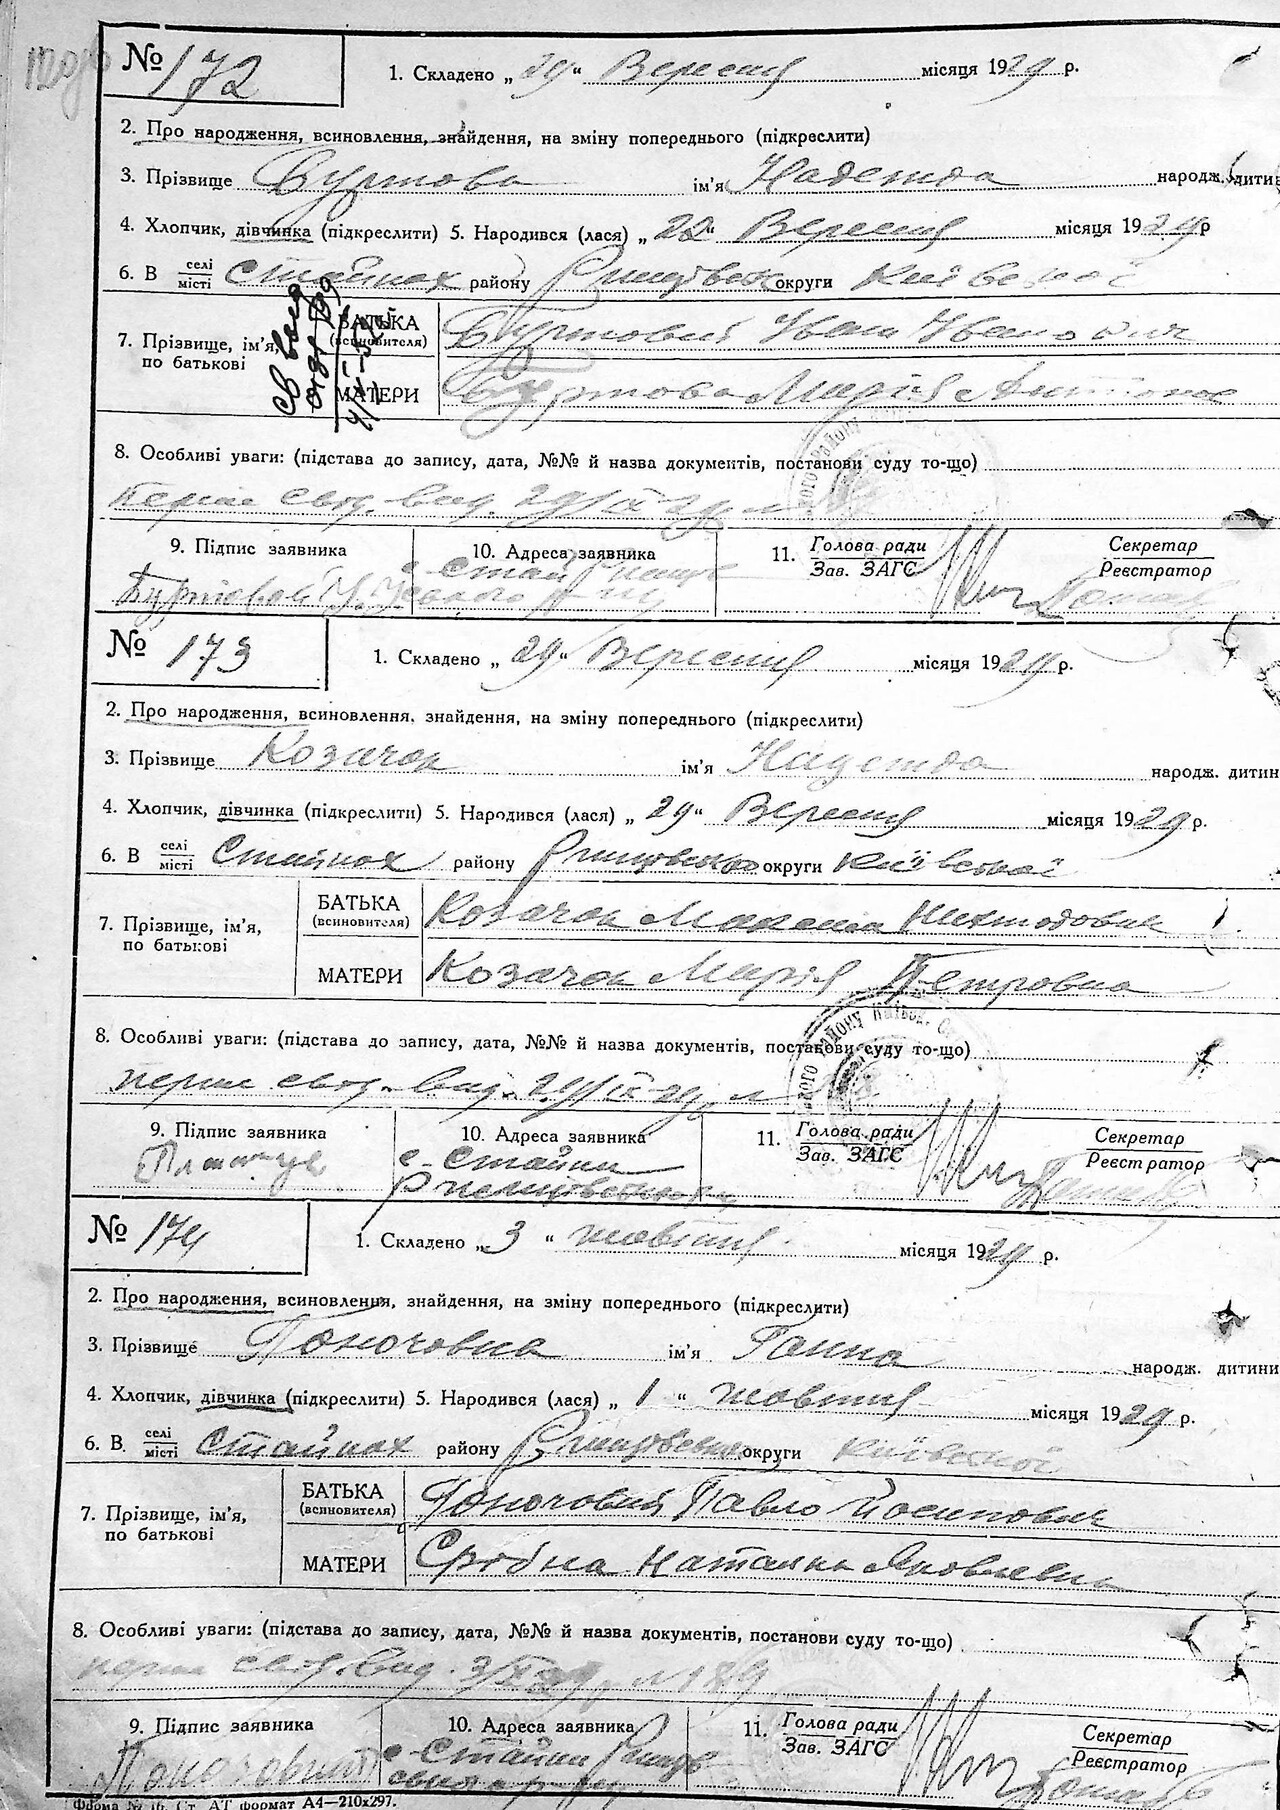 № 172
1. Складено „ 29 “ Вересня місяця 1929 р.
2. Про народження, всиновлення, знайдення, на зміну попереднього (підкреслити)
3. Прізвище Буртова ім'я Надежда народж. дитин
4. Хлопчик, дівчинка (підкреслити) 5. Народився (лася) „ 22 “ Вересня місяця 1929 р
6. В селі місті Стайках району Ржищівськ округи Київської
7. Прізвище, ім'я, по батькові
БАТЬКА (всиновителя) Буртовий Іван Іванович
МАТЕРИ Буртова Марія Антонов
8. Особливі уваги: (підстава до запису, дата, №№ й назва документів, постанови суду то-що)
перше свід. вид. 29/IX 29 р
9. Підпис заявника
10. Адреса заявника
11. Голова ради Зав. ЗАГС
Секретар Реєстратор
Буртовой с. Стайки
№ 173
1. Складено „ 29 “ Вересня місяця 1929 р.
2. Про народження, всиновлення. знайдення, на зміну попереднього (підкреслити)
3. Прізвище Козачок ім'я Надежда народж. дитин
4. Хлопчик, дівчинка (підкреслити) 5. Народився (лася) „ 29 “ Вересня місяця 1929 р.
6. В селі місті Стайках району Ржищівськ округи Київської
7. Прізвище, ім'я, по батькові
БАТЬКА (всиновителя) Козачок Максим
МАТЕРИ Козачок Марія Петровна
8. Особливі уваги: (підстава до запису, дата, №№ й назва документів, постанови суду то-що)
перше свід. вид. 29/IX 29 р
9. Підпис заявника
10. Адреса заявника
11. Голова ради Зав. ЗАГС
Секретар Реєстратор
с. Стайки
№ 174
1. Складено „ 3 “ жовтня місяця 1929 р.
2. Про народження, всиновлення, знайдення, на зміну попереднього (підкреслити)
3. Прізвище Поночовна ім'я Ганна народж. дитини
4. Хлопчик, дівчинка (підкреслити) 5. Народився (лася) „ 1 “ жовтня місяця 1929 р.
6. В селі місті Стайках району Ржищівськ округи Київської
7. Прізвище, ім'я, по батькові
БАТЬКА (всиновителя) Поночовний Павло Йосипович
МАТЕРИ Срібна Наталка Яковлевна
8. Особливі уваги: (підстава до запису, дата, №№ й назва документів, постанови суду то-що)
перше свід. вид. 3/X 29 р №189
9. Підпис заявника
10. Адреса заявника
11. Голова ради Зав. ЗАГС
Секретар Реєстратор
с. Стайки
Форма № 16. Ст. АТ формат А4—210х297.